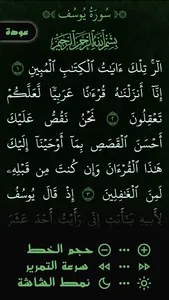 سُورَةُ يُوسُف
عودة
بِسْمِ اللَّهِ الرَّحْمَٰنِ الرَّحِيمِ
الٓرۚ تِلْكَ ءَايَٰتُ ٱلْكِتَٰبِ ٱلْمُبِينِ
١ إِنَّآ أَنزَلْنَٰهُ قُرْءَٰنًا عَرَبِيًّا لَّعَلَّكُمْ
تَعْقِلُونَ ٢ نَحْنُ نَقُصُّ عَلَيْكَ
أَحْسَنَ ٱلْقَصَصِ بِمَآ أَوْحَيْنَآ إِلَيْكَ
هَٰذَا ٱلْقُرْءَانَ وَإِن كُنتَ مِن قَبْلِهِۦ
لَمِنَ ٱلْغَٰفِلِينَ ٣ إِذْ قَالَ يُوسُفُ
لِأَبِيهِ يَٰٓأَبَتِ إِنِّى رَأَيْتُ أَحَدَ عَشَرَ
حجم الخط
سرعة التمرير
نمط الشاشة